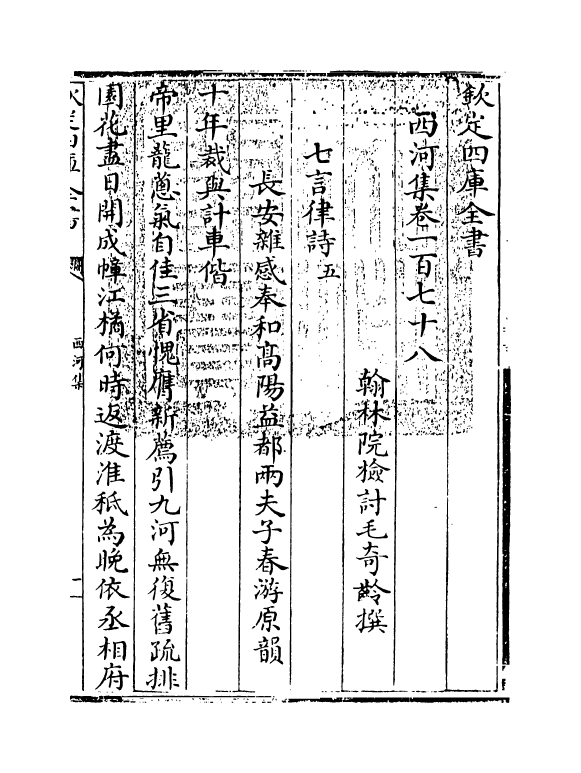 欽定四庫全書
西河集卷一百七十八
翰林院檢討毛奇齡撰
七言律詩五
長安雜感奉和高陽益都兩夫子春游原韻
十年裁與計車偕
帝里龍蔥氣自佳三省愧膺新薦引九河無復舊疏排
園花盡日開成幛江橘何時返渡淮秪為晚依丞相府
欽定四庫全書
西河集